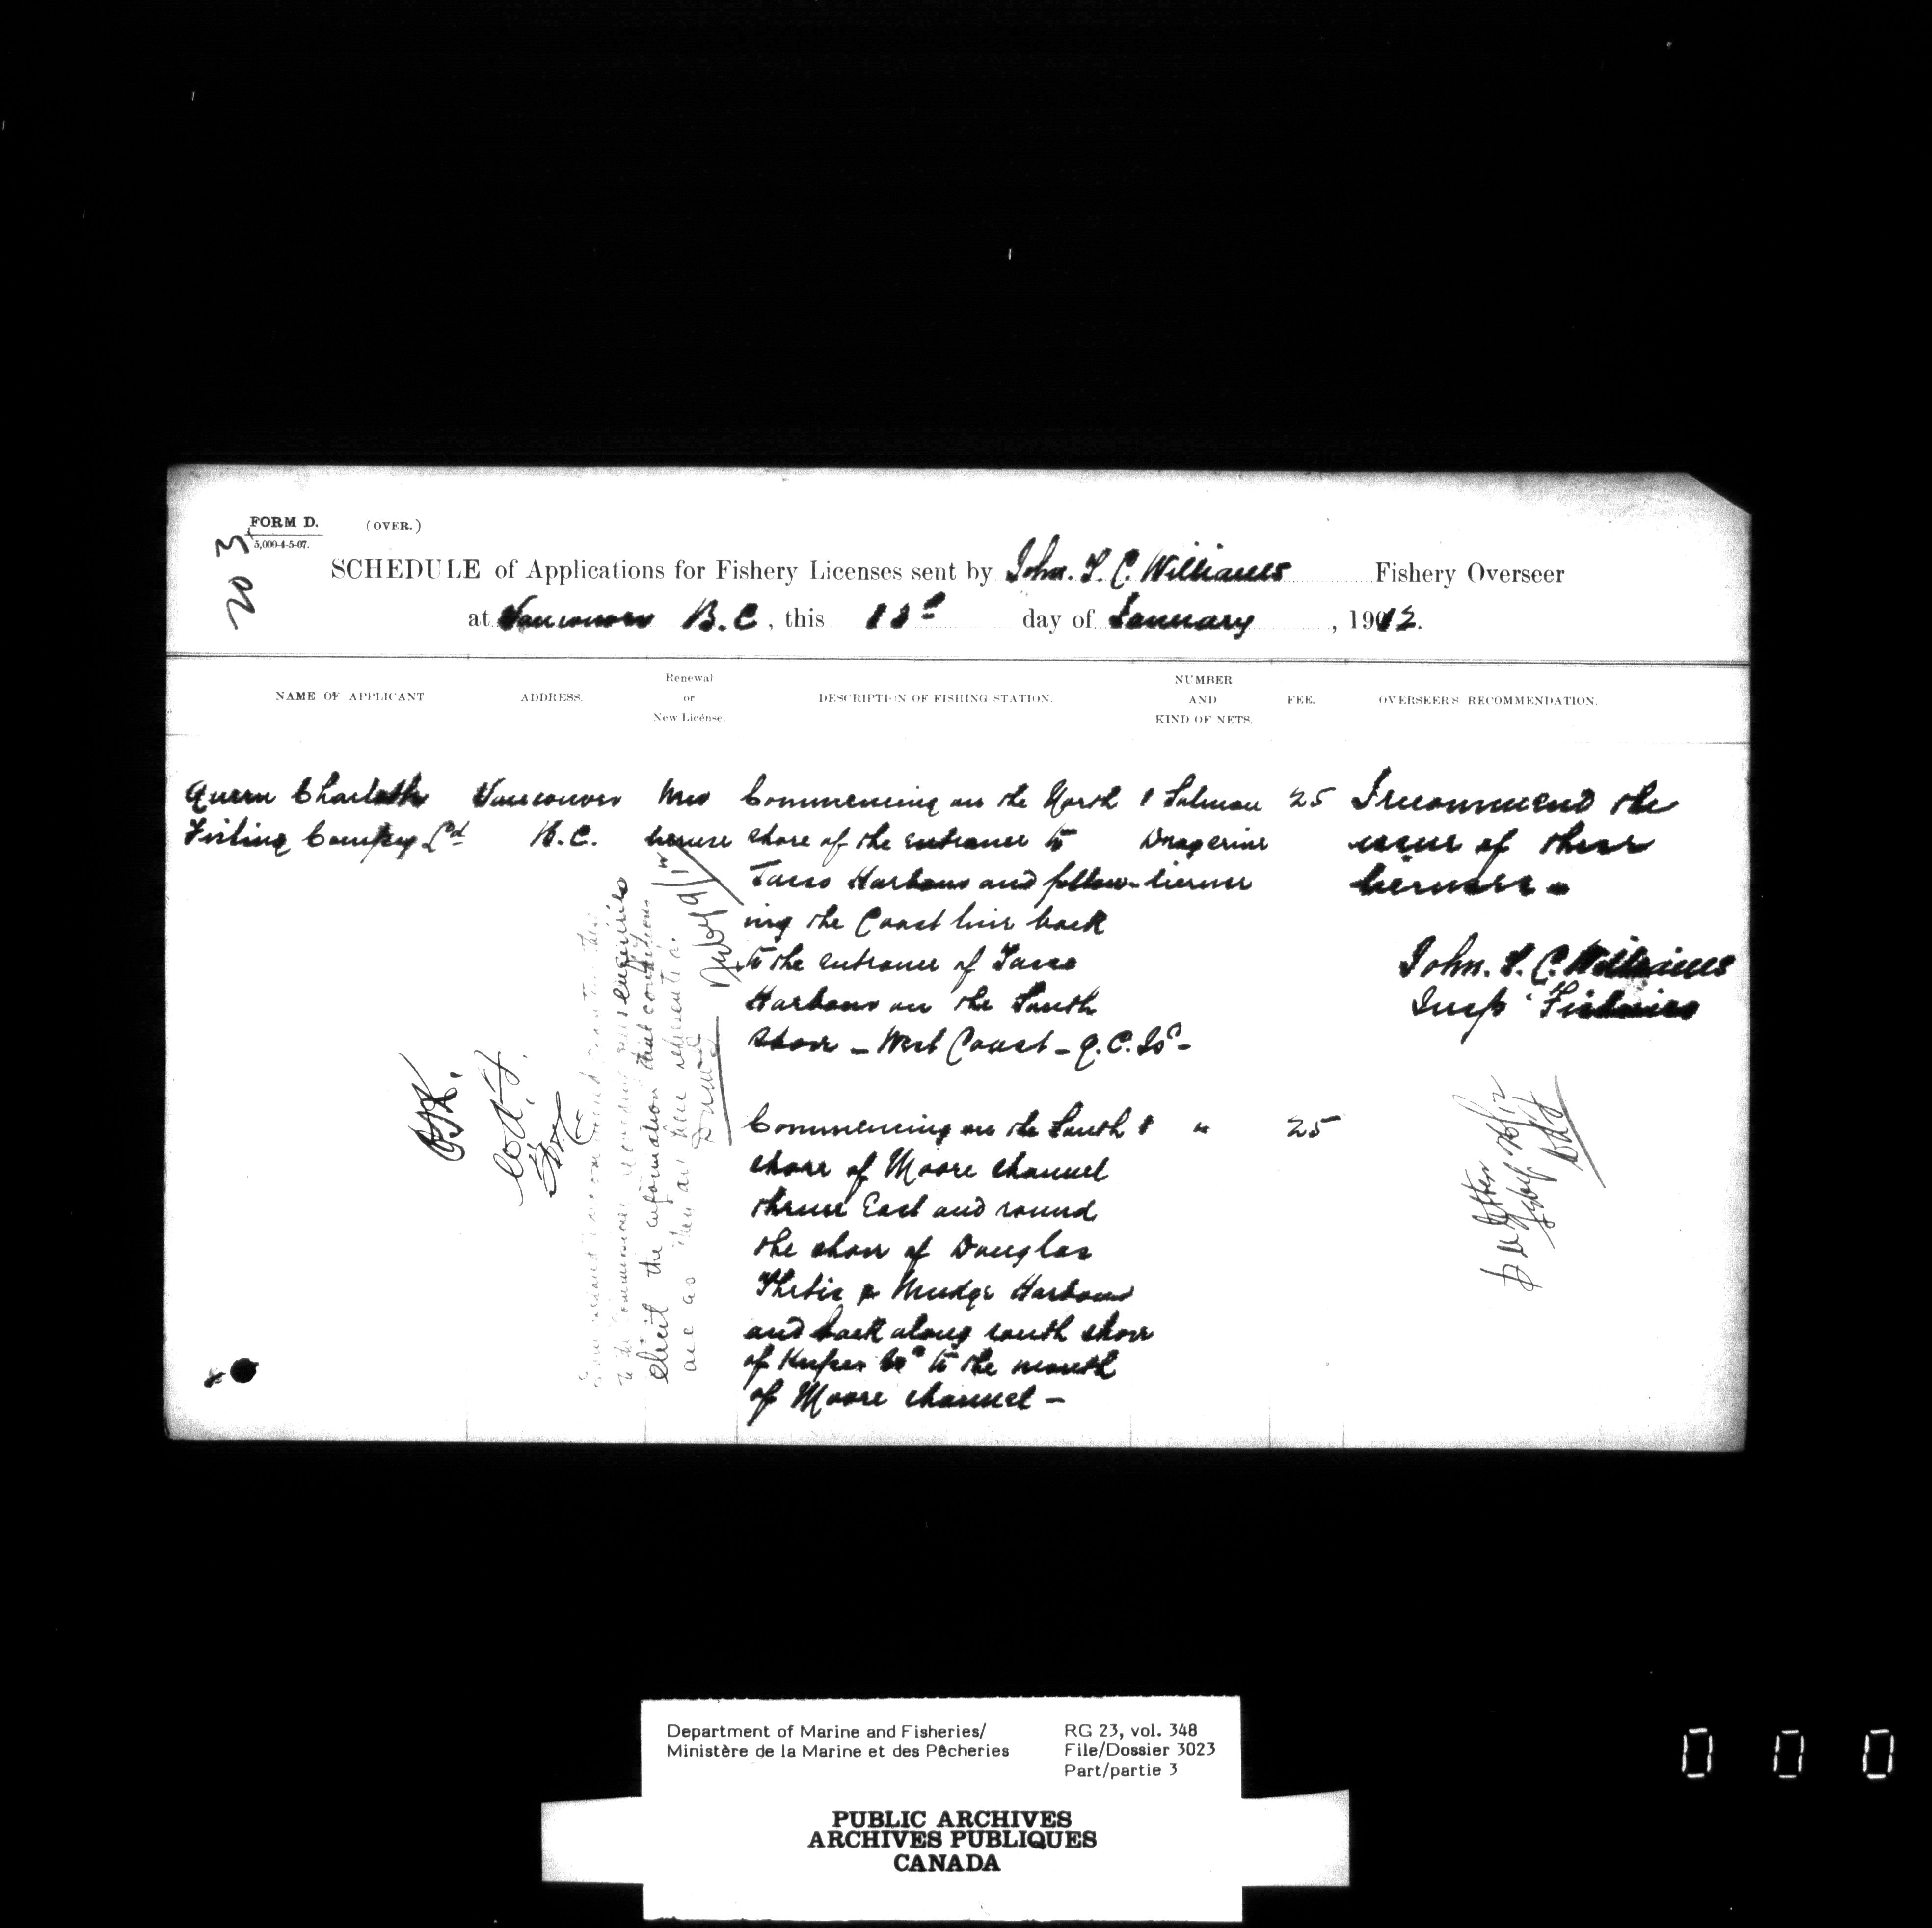 FORM D. (OVER.)
5,000-4-5-07.
203
SCHEDULE of Applications for Fishery Licenses sent by John. T. C. Williams Fishery Overseer
at Vancouver B.C, this 13th day of January, 1912.
NAME OF APPLICANT ADDRESS. Renewal or New License. DESCRIPTION OF FISHING STATION. NUMBER AND KIND OF NETS. FEE. OVERSEER'S RECOMMENDATION.
Queen Charlotte Vancouver New Commencing on the North 1 Salmon 25 I recommend the
Fishing Company Ld B.C. license shore of the entrance to Drag seine issue of these
Tasso Harbour and follow- license licenses -
ing the Coast line back
to the entrance of Tasso
Harbour on the South
Shore - West Coast - Q.C. Is -
John. T. C. Williams
Insp Fisheries
Commencing on the South 1 " 25
shore of Moore channel
thence East and round
the shore of Douglas
Thetis & Mudge Harbour
and back along south shore
of Kuper Is to the mouth
of Moore channel -
elicit the information that conditions
are as they are here represented
Department of Marine and Fisheries/
Ministère de la Marine et des Pêcheries
RG 23, vol. 348
File/Dossier 3023
Part/partie 3
PUBLIC ARCHIVES
ARCHIVES PUBLIQUES
CANADA
0 0 0